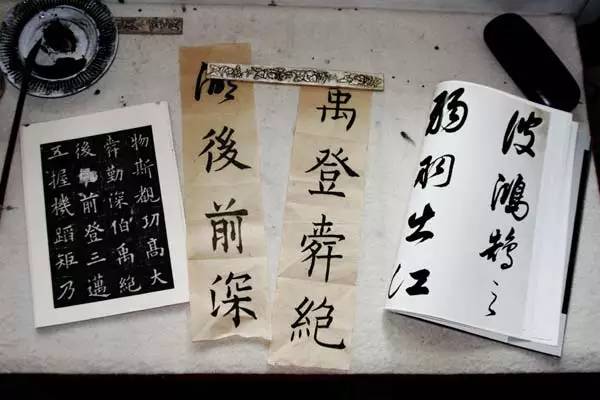 波鴻鵠之
弱羽出江
禹登舜絶
後前深
物斯覩功高大
舜勤深伯禹絶
後前登三邁
五握機蹈矩乃